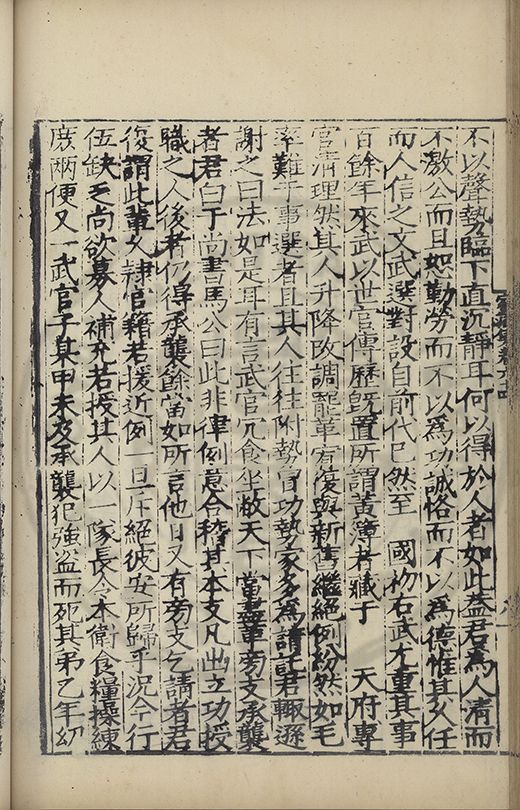 不以聲勢臨下直沉靜耳何以得於人者如此蓋君為人清而
不激公而且恕勤勞而不以為功誠恪而不以為德惟其久任
而人信之文武選對設自前代已然至 國初右武尤重其事
百餘年來武以世官傳歷旣置所謂黃簿者藏于 天府專
官清理然其人升降改調罷革宥復與新舊繼絕例紛然如毛
率難于事選者且其人往往附勢冐功勢家多為請託君輙遜
謝之曰法如是耳有言武官冗食坐敝天下當盡革旁支承襲
者君白于尚書馬公曰此非律例意合稽其本支凡出立功授
職之人後者仍得承襲餘當如所言他日又有旁支乞請者君
復謂此輩久隷官籍若援近例一旦斥絕彼安所歸乎況今行
伍缺乏尚欲募人補充若授其人以一隊長令本衛食糧操練
庶兩便又一武官子其甲未及承襲犯強盜而死其弟乙年幼